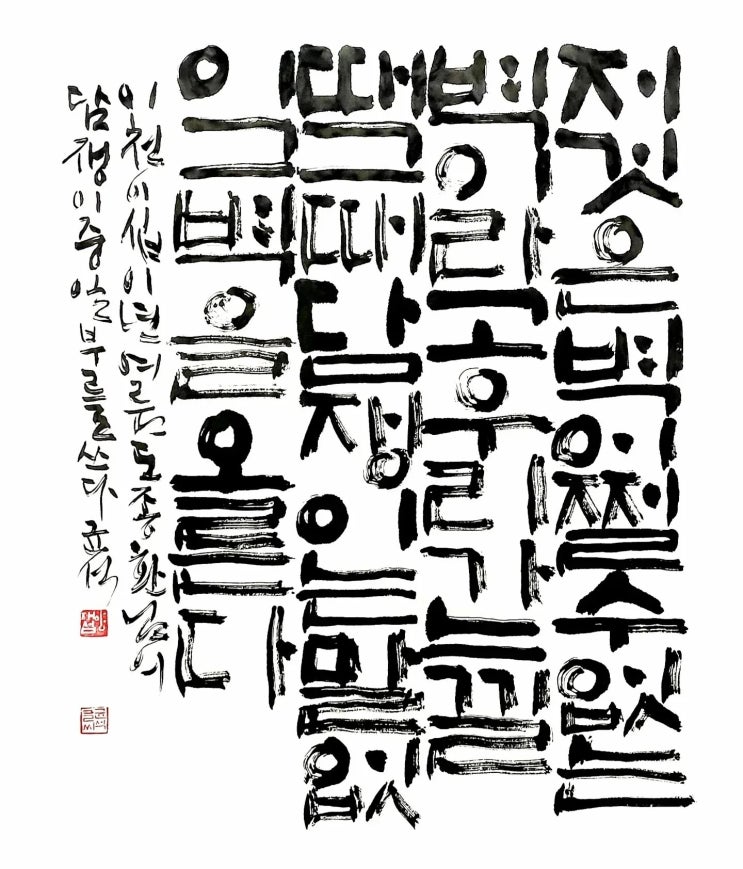 저것은벽어쩔수없는
벽이라고우리가느낄
때그때담쟁이는말없
이그벽을오른다
이천이십이년 여름 도종환님의
담쟁이 중 일부를 쓰다 윤석